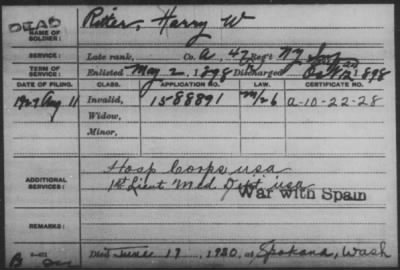 DEAD
NAME OF SOLDIER: Ritter, Harry W
SERVICE: Late rank, Co. A, 47 Reg't NY Inf
TERM OF SERVICE: Enlisted May 2, 1898 Discharged 1898
DATE OF FILING. CLASS. APPLICATION NO. LAW. CERTIFICATE NO.
1927 Aug 11 Invalid, 1588891 a-10-22-28
Widow,
Minor,
ADDITIONAL SERVICES: Hosp Corps usa
1st Lieut Med Dept usa
War with Spain
REMARKS:
Died June 19, 1930, at Spokane, Wash